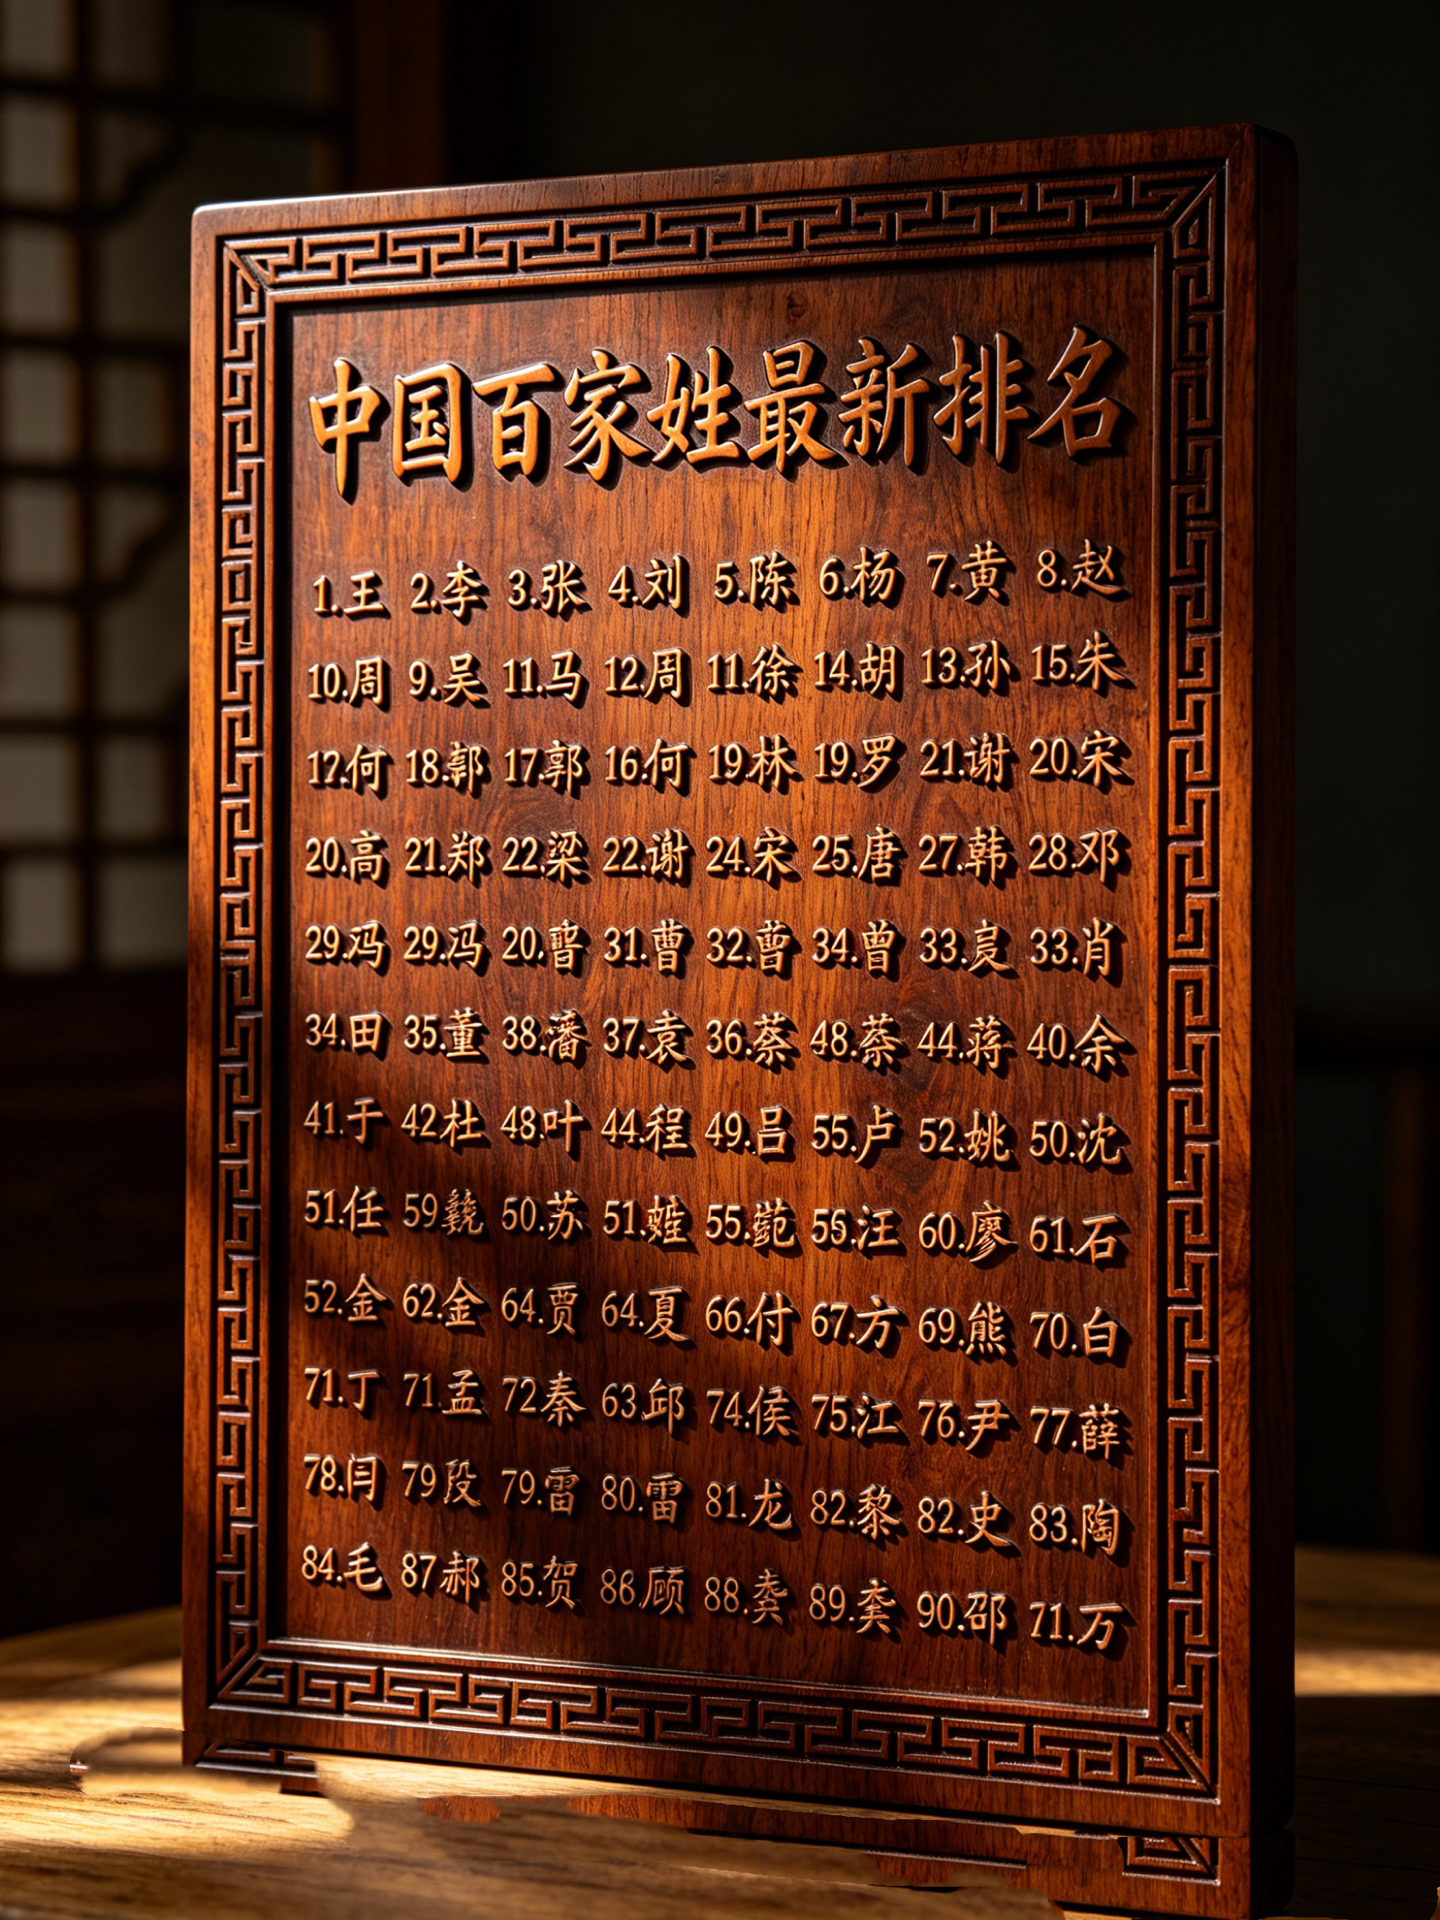 中国百家姓最新排名
1.王 2.李 3.张 4.刘 5.陈 6.杨 7.黄 8.赵
10.周 9.吴 11.马 12.周 11.徐 14.胡 13.孙 15.朱
12.何 18.郭 17.郭 16.何 19.林 19.罗 21.谢 20.宋
20.高 21.郑 22.梁 22.谢 24.宋 25.唐 27.韩 28.邓
29.冯 29.冯 20. 31.曹 32.曹 34.曾 33. 33.肖
34.田 35.董 38.潘 37.袁 36.蔡 48.蔡 44.蒋 40.余
41.于 42杜 48.叶 44.程 49.吕 55.卢 52.姚 50.沈
51.任 59 50.苏 51. 55. 55.汪 60.廖 61.石
52.金 62.金 64.贾 64.夏 66.付 67.方 69.熊 70.白
71.丁 71.孟 72.秦 63.邱 74.侯 75.江 76.尹 77.薛
78.闫 79段 79.雷 80.雷 81.龙 82.黎 82.史 83.陶
84.毛 87郝 85.贺 86.顾 88.龚 89. 90.邵 71.万